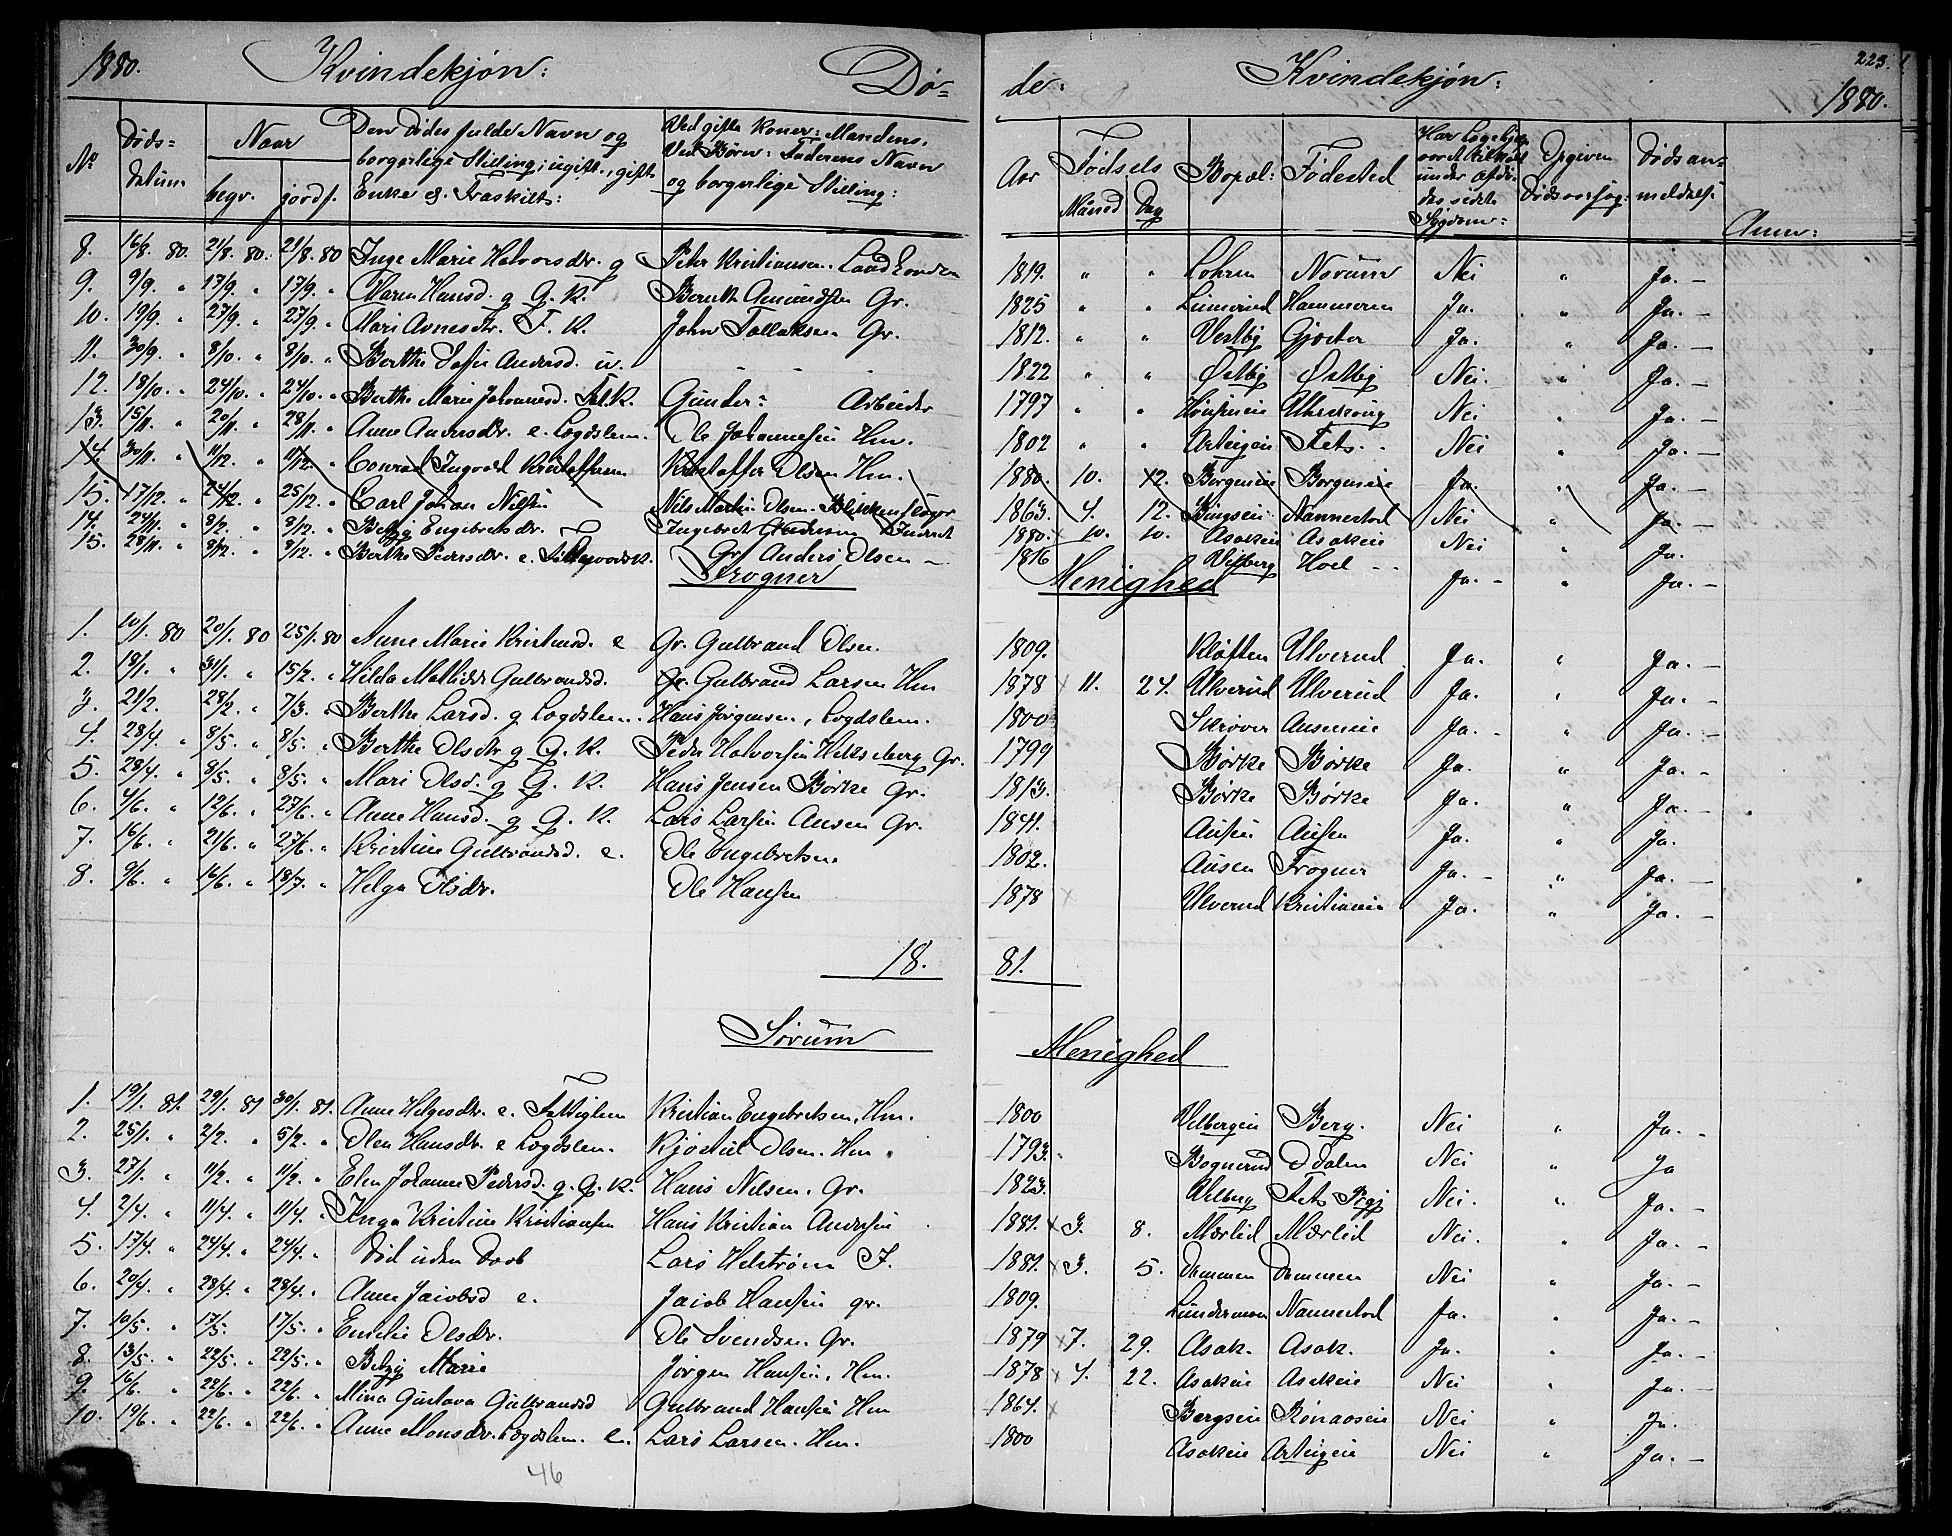 1880. Kvindekjøn: Dø= de: Kvindekjøn: 223. 1880.
No Døds= datum Naar begr. jordf. Den Dødes fulde Navn og borgerlige Stilling; ugift, gift Enke & Fraskilt: Ved gifte Koner: Mandens, Ved Børn: Faderens Navn og borgerlige Stilling: Aar Fødsels Måned Dag Bopæl: Fødested Opgiven Dødsaarsag: Dødsan= meldelse Anm:
8. 16/8. 80. 21/8. 80. 21/8. 80 Inge Marie Halvorsdtr. g Peter Kristiansen. 1819. " " Lohren Norum Nei " Ja. —
9. 9/9. " 17/9. " 17/9. " Maren Hansd. g G. K. Bernth Amundsen Gr. 1825 " " Hammeren Ja. " Ja. —
10. 19/9. " 27/9. " 27/9. " Mari Arnesdtr. F. K. John Tollaksen Gr. 1812. " " Vestby Ja. " Ja. —
11. 30/9. " 8/10. " 8/10. " Berthe Sofie Andersd. u. - - - 1822 " " Østby Østby Nei. " Ja. —
12. 18/10. " 24/10. " 24/10. " Berthe Marie Johannesd. Gunder - Arbeider 1797 " " Nei " Ja. —
13. 15/11. " 20/11. " 28/11. " Anne Andersdtr. e. Lægdslem. Ole Johannesen Hm. 1802 " " Arteigen Fets. - Nei " Ja. —
14. 30/11. " 11/12. " 11/12. " Conrad Ingvald Kristoffersen Kristoffer Olsen Hm. 1880. 10. 12. Borgeneie Borgeneie Ja. " Ja. —
15. 17/12. " 24/12. " 25/12. " Carl Johan Nilsen Nils Martin Olsen - 1863. 4. 12. Bingseie Nannestad Nei " Ja. —
14. 24/11. " 8/12. " 8/12. " Betzy Engebretsdtr. Ingebret Gundersen Inderst 1880. 10. 10. Asakeie Asakeie Nei " Ja.
15. 28/11. " 8/12. " 8/12. " Berthe Pedersdtr. e. Gr. Anders Olsen — 1816 Vilberg Hoel - - Ja. - " Ja. —
Frogner Menighed
1. 10/1. 80 20/1. 80 25/1. 80 Anne Marie Kristensd. e Gr. Gulbrand Olsen. 1809. Kløften Ulverud Ja. " Ja. —
2. 18/1. " 31/1. " 15/2. " Hilda Mathilde Gulbrandsd. Gr. Gulbrand Larsen Hm 1878 x 11. 24. Ulverud Ulverud Ja. " Ja. —
3. 21/2. 28/2. " 7/3. " Berthe Larsd. g Lægdslem. Hans Jørgensen, Lægdslem. 1800 Skrøver Auseneie Ja. - " Ja. —
4. 28/4. " 8/5. " 8/5. " Berthe Olsdtr. g G. K. Peder Halvorsen Hekseberg Gr. 1799 Børke Børke Ja. " Ja. —
5. 28/4. " 8/5. " 8/5. " Mari Olsd. g G. K. Hans Jensen Børke Gr. 1813. Børke Børke Ja. " Ja. —
6. 4/6. " 12/6. " 27/6. " Anne Hansd. g G. K. Lars Larsen Ausen Gr. 1841. Ausen Ausen Ja. " Ja.
7. 16/6. " 21/6. " 27/6. " Kristine Gulbrandsd. e. Ole Engebretsen 1802. Ausen Frogner Ja. - " Ja. —
8. 9/6. " 16/6. " 18/7. " Helga Olsdtr. Ole Hansen 1878 x Ulverud Kristiania Ja. " Ja. —
18. 81.
Sørum Menighed
1. 19/1. 81. 29/1. 81 30/1. 81. Anne Helgesdtr. e. Fattiglem Kristian Engebretsen, Hm. 1800 Vilbergeie Berg. Nei " Ja. -
2. 25/1. " 2/2. " 5/2. " Olea Hansdtr. e Lægdslem. Kjøstul Olsen. Hm. 1793. Bognerud Odalen Nei " Ja
3. 27/1. " 11/2. " 11/2. " Elen Johanne Pedersd. g. G. K. Hans Nilsen. Gr. 1823. Vilberg Fets Pgj Nei. " Ja. —
4. 2/4. " 11/4. " 11/4. " Inga Kristine Kristiansen Hans Kristian Andersen 1881. x 3. 8. Mærlid Mærlid Nei. " Ja. —
5. 17/4. " 24/4. " 24/4. " Død uden Daab Lars Helstrøm I. 1881. x 3. 5. Dammen Dammen Nei " Ja. —
6. 20/4. " 28/4. " 28/4. " Anne Jacobsd e. Jacob Hansen gr. 1809. Lundermoen Nannestad Ja. " Ja. —
7. 10/5. " 17/5. 17/5. " Emilie Olsdtr. Ole Svendsen Gr. 1879 x 7. 29. Asak. Asak. Ja. " Ja. —
8. 13/5. " 22/5. " 22/5. " Betzy Marie Jørgen Hansen, Hm. 1878 x 4. 22. Asakeie Asakeie Nei " Ja. —
9. 16/6. " 22/6. " 22/6. " Mina Gustava Gulbrandsd Gulbrand Hansen Hm 1864. x Bergseie Rønaaseie Nei " Ja.
10. 19/6. " 22/6. " 22/6. " Anne Monsdtr. Lægdslem. e. Lars Larsen. Hm. 1800 Asakeie Arteigeie Nei " Ja. —
46